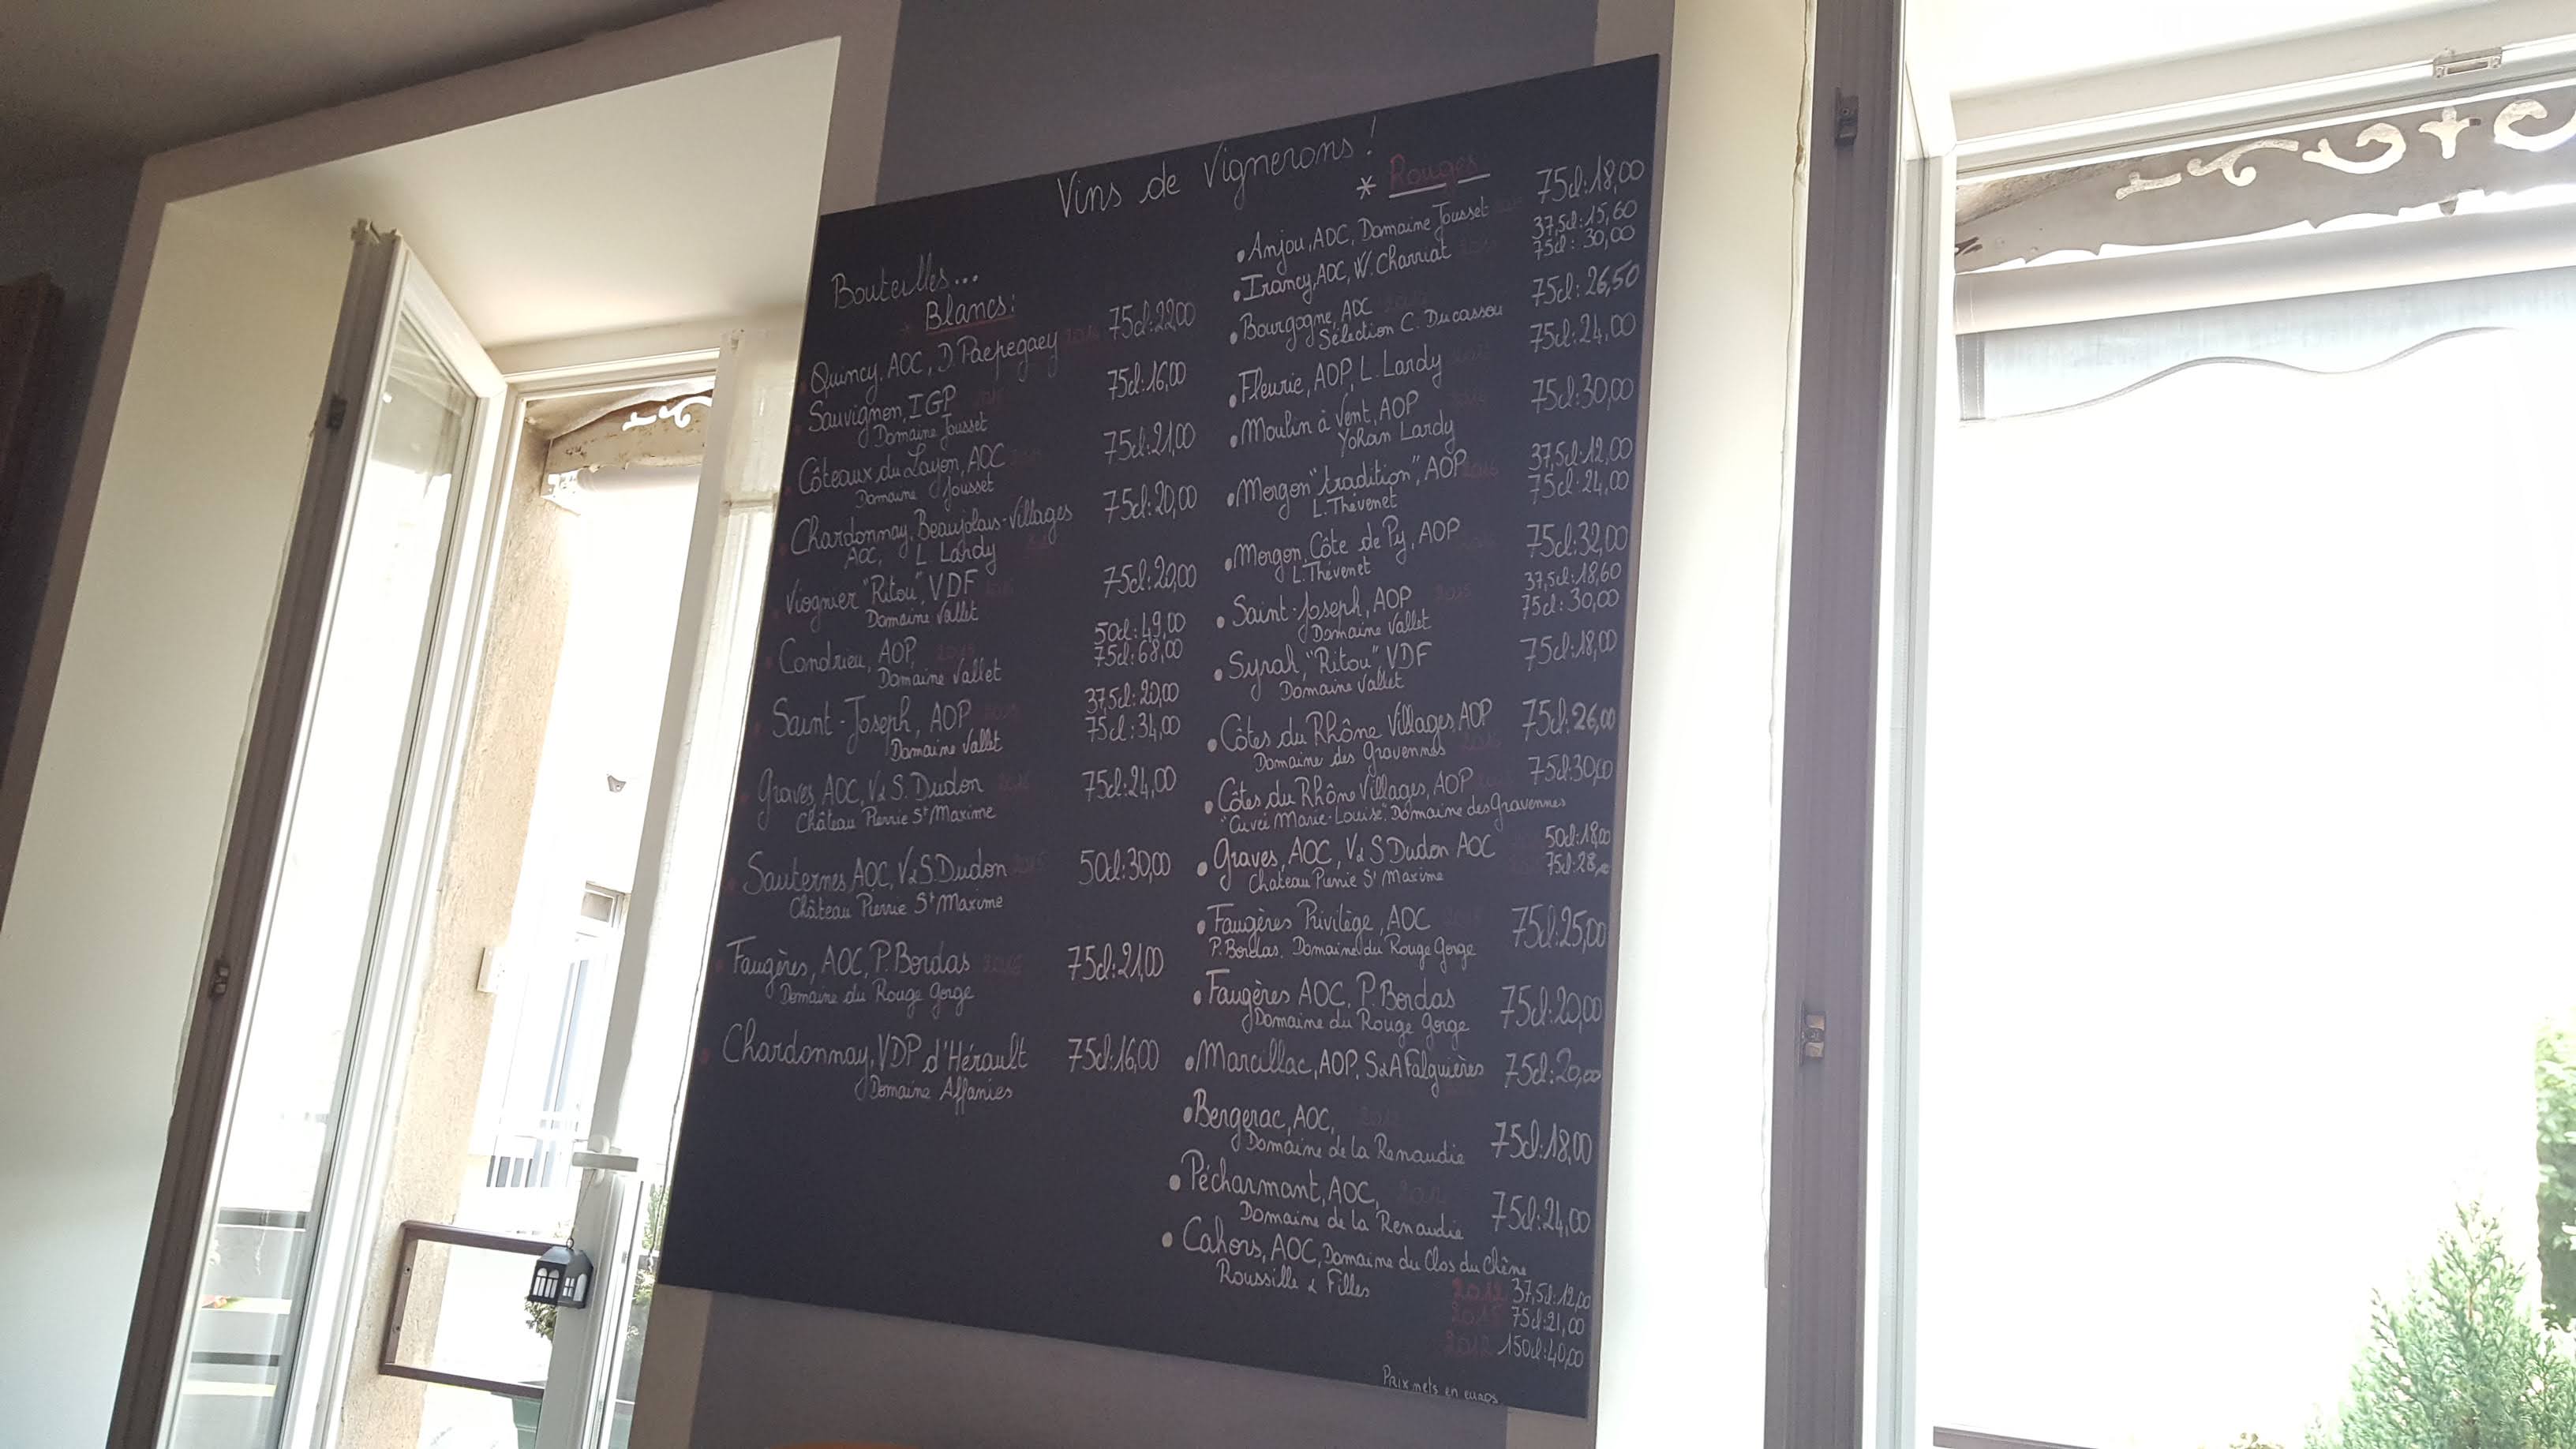 Vins de Vignerons !
Bouteilles...
Blancs:
Quincy, AOC, D Paepegaey 75cl: 22,00
Sauvignon, IGP 75cl: 16,00
Domaine Jousset
Côteaux du Layon, AOC 75cl: 21,00
Domaine Jousset
Chardonnay, Beaujolais-Villages 75cl: 20,00
AOC, L. Lardy
Viognier "Ritou", VDF 75cl: 20,00
Domaine Vallet
50cl: 49,00
Condrieu, AOP 2015 75cl: 68,00
Domaine Vallet
37,5cl: 20,00
Saint-Joseph, AOP 75cl: 34,00
Domaine Vallet
Graves, AOC, V&S. Dudon 2016 75cl: 24,00
Château Pierrie St Maxime
Sauternes AOC, V&S Dudon 2015 50cl: 30,00
Château Pierrie St Maxime
Faugères, AOC, P. Bordas 75cl: 21,00
Domaine du Rouge Gorge
Chardonnay, VDP d'Hérault 75cl: 16,00
Domaine Affanies
* Rouges
• Anjou, AOC, Domaine Jousset 75cl: 18,00
37,5cl: 15,60
• Irancy, AOC, W. Charriat 75cl: 30,00
• Bourgogne, AOC 75cl: 26,50
Sélection C. Ducassou
• Fleurie, AOP, L. Lardy 75cl: 24,00
• Moulin à Vent, AOP 75cl: 30,00
Yohan Lardy
37,5cl: 12,00
• Morgon "tradition", AOP 2016 75cl: 24,00
L. Thévenet
• Morgon, Côte de Py, AOP 75cl: 32,00
L. Thévenet
37,5cl: 18,60
• Saint-Joseph, AOP 2015 75cl: 30,00
Domaine Vallet
• Syrah, "Ritou", VDF 75cl: 18,00
Domaine Vallet
• Côtes du Rhône Villages, AOP 75cl: 26,00
Domaine des Gravennes
• Côtes du Rhône Villages, AOP 75cl: 30,00
"Cuvée Marie-Louise", Domaine des Gravennes
50cl: 18,00
• Graves, AOC, V&S Dudon AOC 75cl: 28,00
Château Pierrie St Maxime
• Faugères Privilège, AOC 75cl: 25,00
P. Bordas. Domaine du Rouge Gorge
• Faugères AOC, P. Bordas 75cl: 20,00
Domaine du Rouge Gorge
• Marcillac, AOP, S&A Falguières 75cl: 20,00
• Bergerac, AOC, 75cl: 18,00
Domaine de la Renaudie
• Pécharmant, AOC, 75cl: 24,00
Domaine de la Renaudie
• Cahors, AOC, Domaine du Clos du Chêne
Roussille & Filles
2012 37,5cl: 12,00
75cl: 21,00
2012 150cl: 40,00
Prix nets en euros